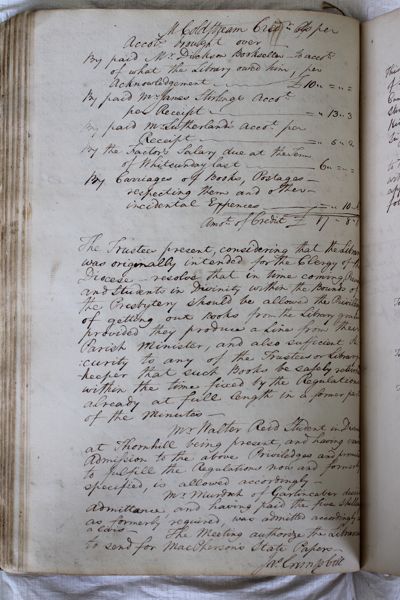 M. Coldstream Cred.r as per
Accot. brought over
By paid Mr. Dickson Bookseller to accot.
of what the Library owed him, per
Acknowledgement £10 " = " =
By paid Mr. James Stirlings Accot.
per Receipt " = 13 " 3
By paid Mr. Sutherlands Accot. per
Receipt
By the Factors Salary due at the Term
of Whitsunday last 6 " = " =
By Carriages of Books, Postages
respecting them and other
incidental Expences
Amot. of Credit £ 17
The Trustees present, considering that the Library
was originally intended for the Clergy of
Diocese resolve that in time coming
and Students in Divinity within the Bounds of
the Presbytery should be allowed the Priviledge
of getting out Books from the Library
provided they produce a Line from their
Parish Minister, and also sufficient Se
:curity to any of the Trustees or Library
keeper that such Books be safely
within the time fixed by the Regulations
already at full length in a former part
of the Minutes —
Mr. Walter Reid Student in
at Thornhill being present, and having
Admission to the above Priviledges and
to fulfill the Regulations now and formerly
specified, is allowed accordingly —
Mr. Murdoch of Gartincaber
Admittance, and having paid the five Shillings
as formerly required, was admitted accordingly
The Meeting authorize the
to send for MacPherson's State Papers.